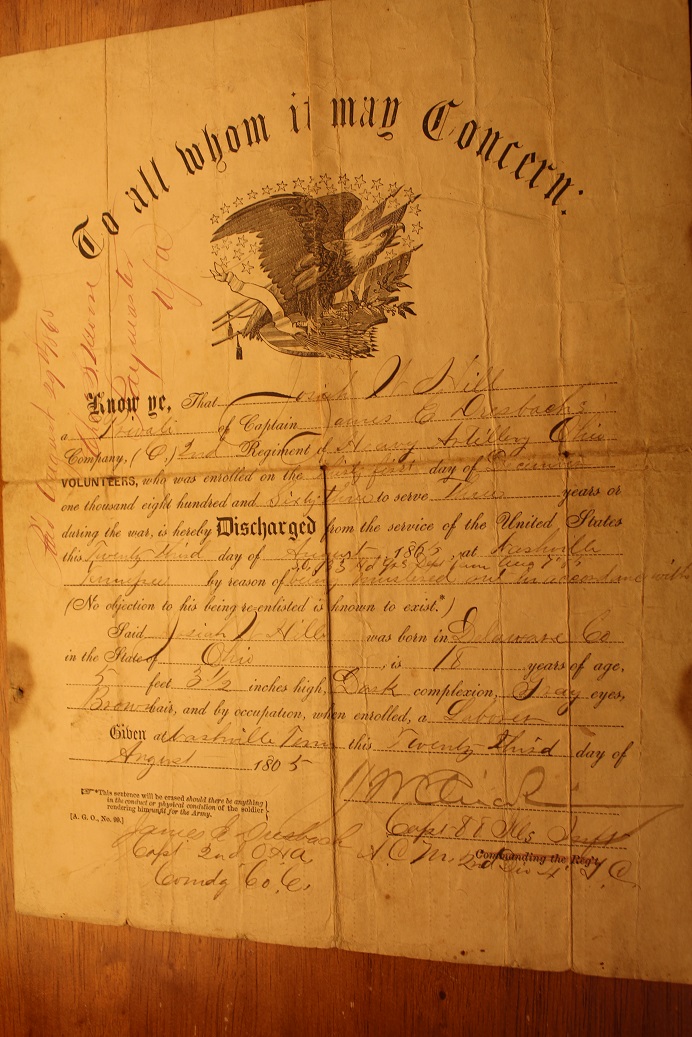 To all whom it may Concern:
Know ye, That Josiah W. Hill
a Private of Captain James C. Dresbach's
Company, (C,) 2nd Regiment of Heavy Artillery Ohio
VOLUNTEERS, who was enrolled on the day of
one thousand eight hundred and Sixty to serve Three years or
during the war, is hereby Discharged from the service of the United States
this Twenty Third day of August, 1865, at Nashville
Tennessee by reason of being mustered out in accordance with
(No objection to his being re-enlisted is known to exist.*)
Said Josiah W. Hill was born in Delaware Co
in the State of Ohio, is 18 years of age,
5 feet 3½ inches high, Dark complexion, Gray eyes,
Brown hair, and by occupation, when enrolled, a Laborer
Given at Nashville Tenn this Twenty Third day of
August 1865
*This sentence will be erased should there be anything
in the conduct or physical condition of the soldier
rendering him unfit for the Army.
[A. G. O., No. 99.]
James C. Dresbach
Capt 2nd O.H.A.
Comdg Co. C.
Capt 88 Ills Inft
A.C.M. 2nd Div 4" A.C.
Commanding the Reg't.
Paid August 29th/65
Paymaster
USA